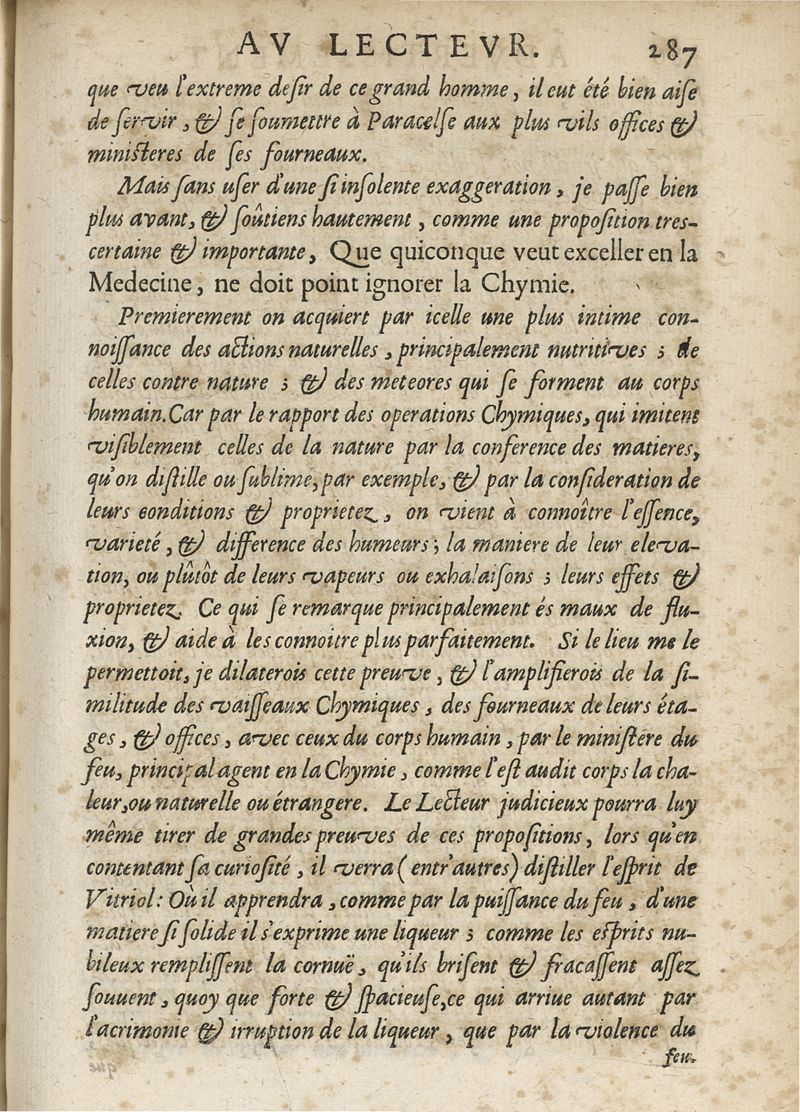 AV LECTEVR. 287
que veu l'extreme desir de ce grand homme, il eut été bien aise
de servir, & se soumettre à Paracelse aux plus vils offices &
ministeres de ses fourneaux.
Mais sans user d'une si insolente exaggeration, je passe bien
plus avant, & soûtiens hautement, comme une proposition tres-
certaine & importante, Que quiconque veut exceller en la
Medecine, ne doit point ignorer la Chymie.
Premierement on acquiert par icelle une plus intime con-
noissance des actions naturelles, principalement nutritives; de
celles contre nature; & des meteores qui se forment au corps
humain. Car par le rapport des operations Chymiques, qui imitent
visiblement celles de la nature par la conference des matieres,
qu'on distille ou sublime, par exemple, & par la consideration de
leurs conditions & proprietez, on vient à connoître l'essence,
varieté, & difference des humeurs; la maniere de leur eleva-
tion, ou plûtôt de leurs vapeurs ou exhalaisons; leurs effets &
proprietez. Ce qui se remarque principalement és maux de flu-
xion, & aide à les connoitre plus parfaitement. Si le lieu me le
permettoit, je dilaterois cette preuve, & l'amplifierois de la si-
militude des vaisseaux Chymiques, des fourneaux de leurs éta-
ges, & offices, avec ceux du corps humain, par le ministere du
feu, principal agent en la Chymie, comme l'est audit corps la cha-
leur, ou naturelle ou étrangere. Le Lecteur judicieux pourra luy
même tirer de grandes preuves de ces propositions, lors qu'en
contentant sa curiosité, il verra (entr'autres) distiller l'esprit de
Vitriol: Où il apprendra, comme par la puissance du feu, d'une
matiere si solide il s'exprime une liqueur; comme les esprits nu-
bileux remplissent la cornuë, qu'ils brisent & fracassent assez
souuent, quoy que forte & spacieuse, ce qui arriue autant par
l'acrimonie & irruption de la liqueur, que par la violence du
feu.